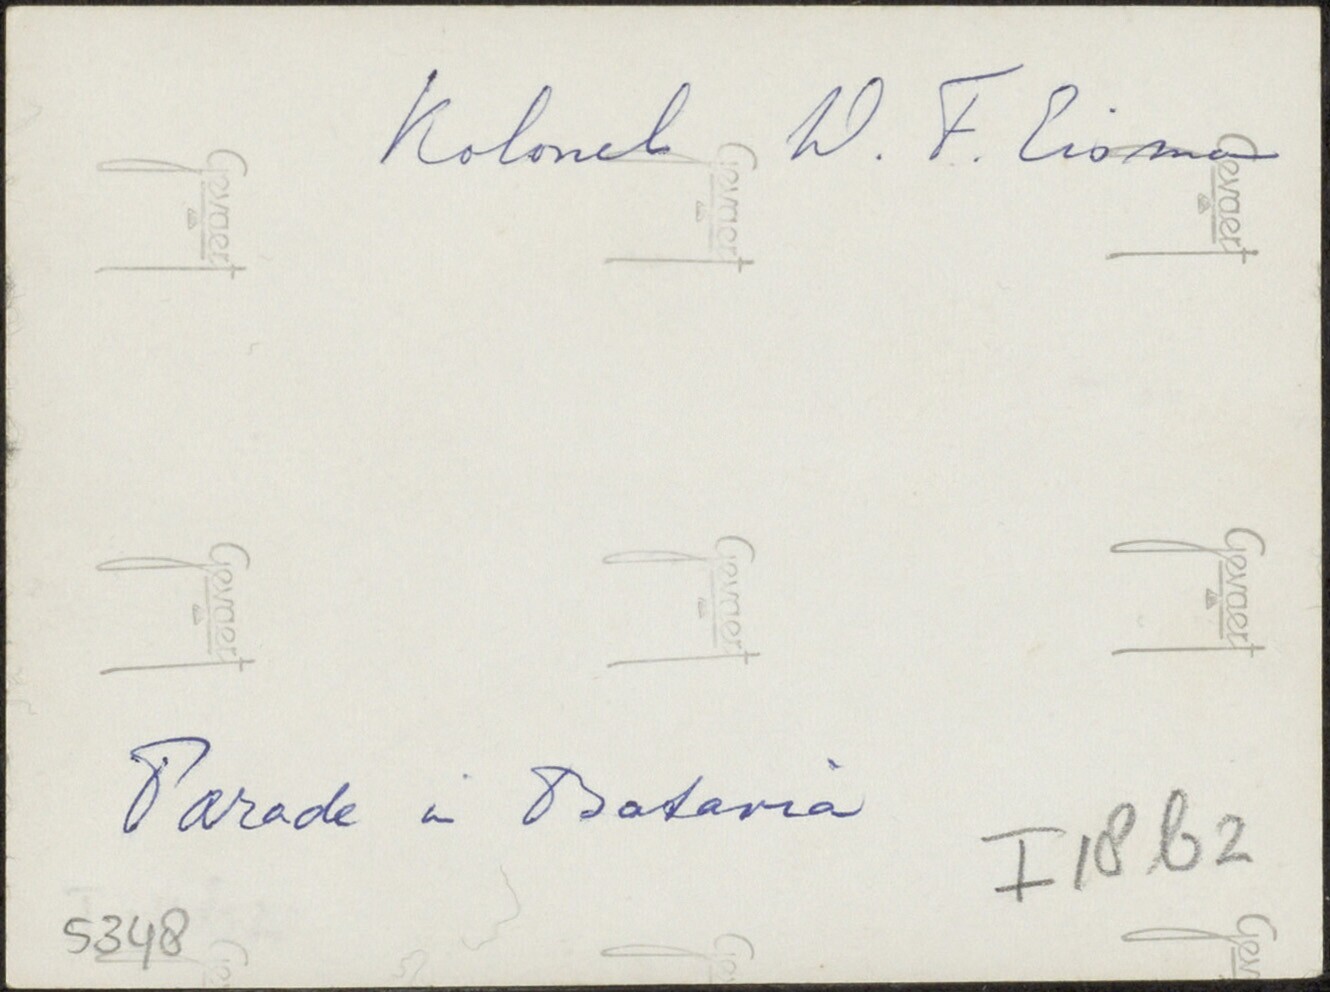 Kolonel W. F. Eisma
Gevaert
Gevaert
Gevaert
Gevaert
Gevaert
Gevaert
Parade in Batavia
I 18 b 2
5348
Gev